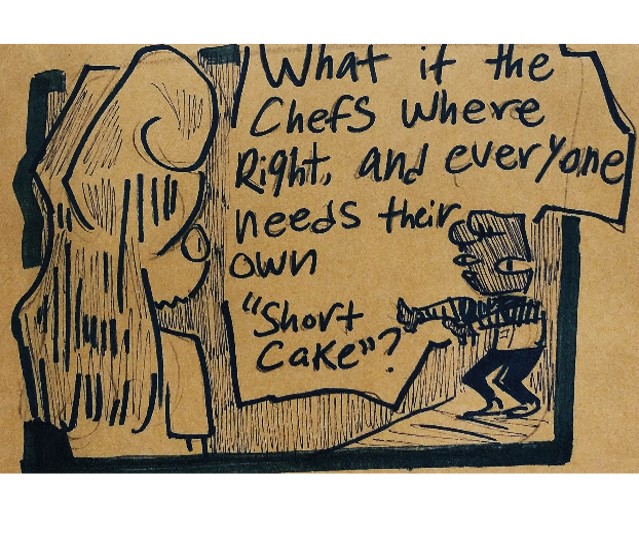 What if the
Chefs where
Right, and everyone
needs their
own
"Short
Cake"?